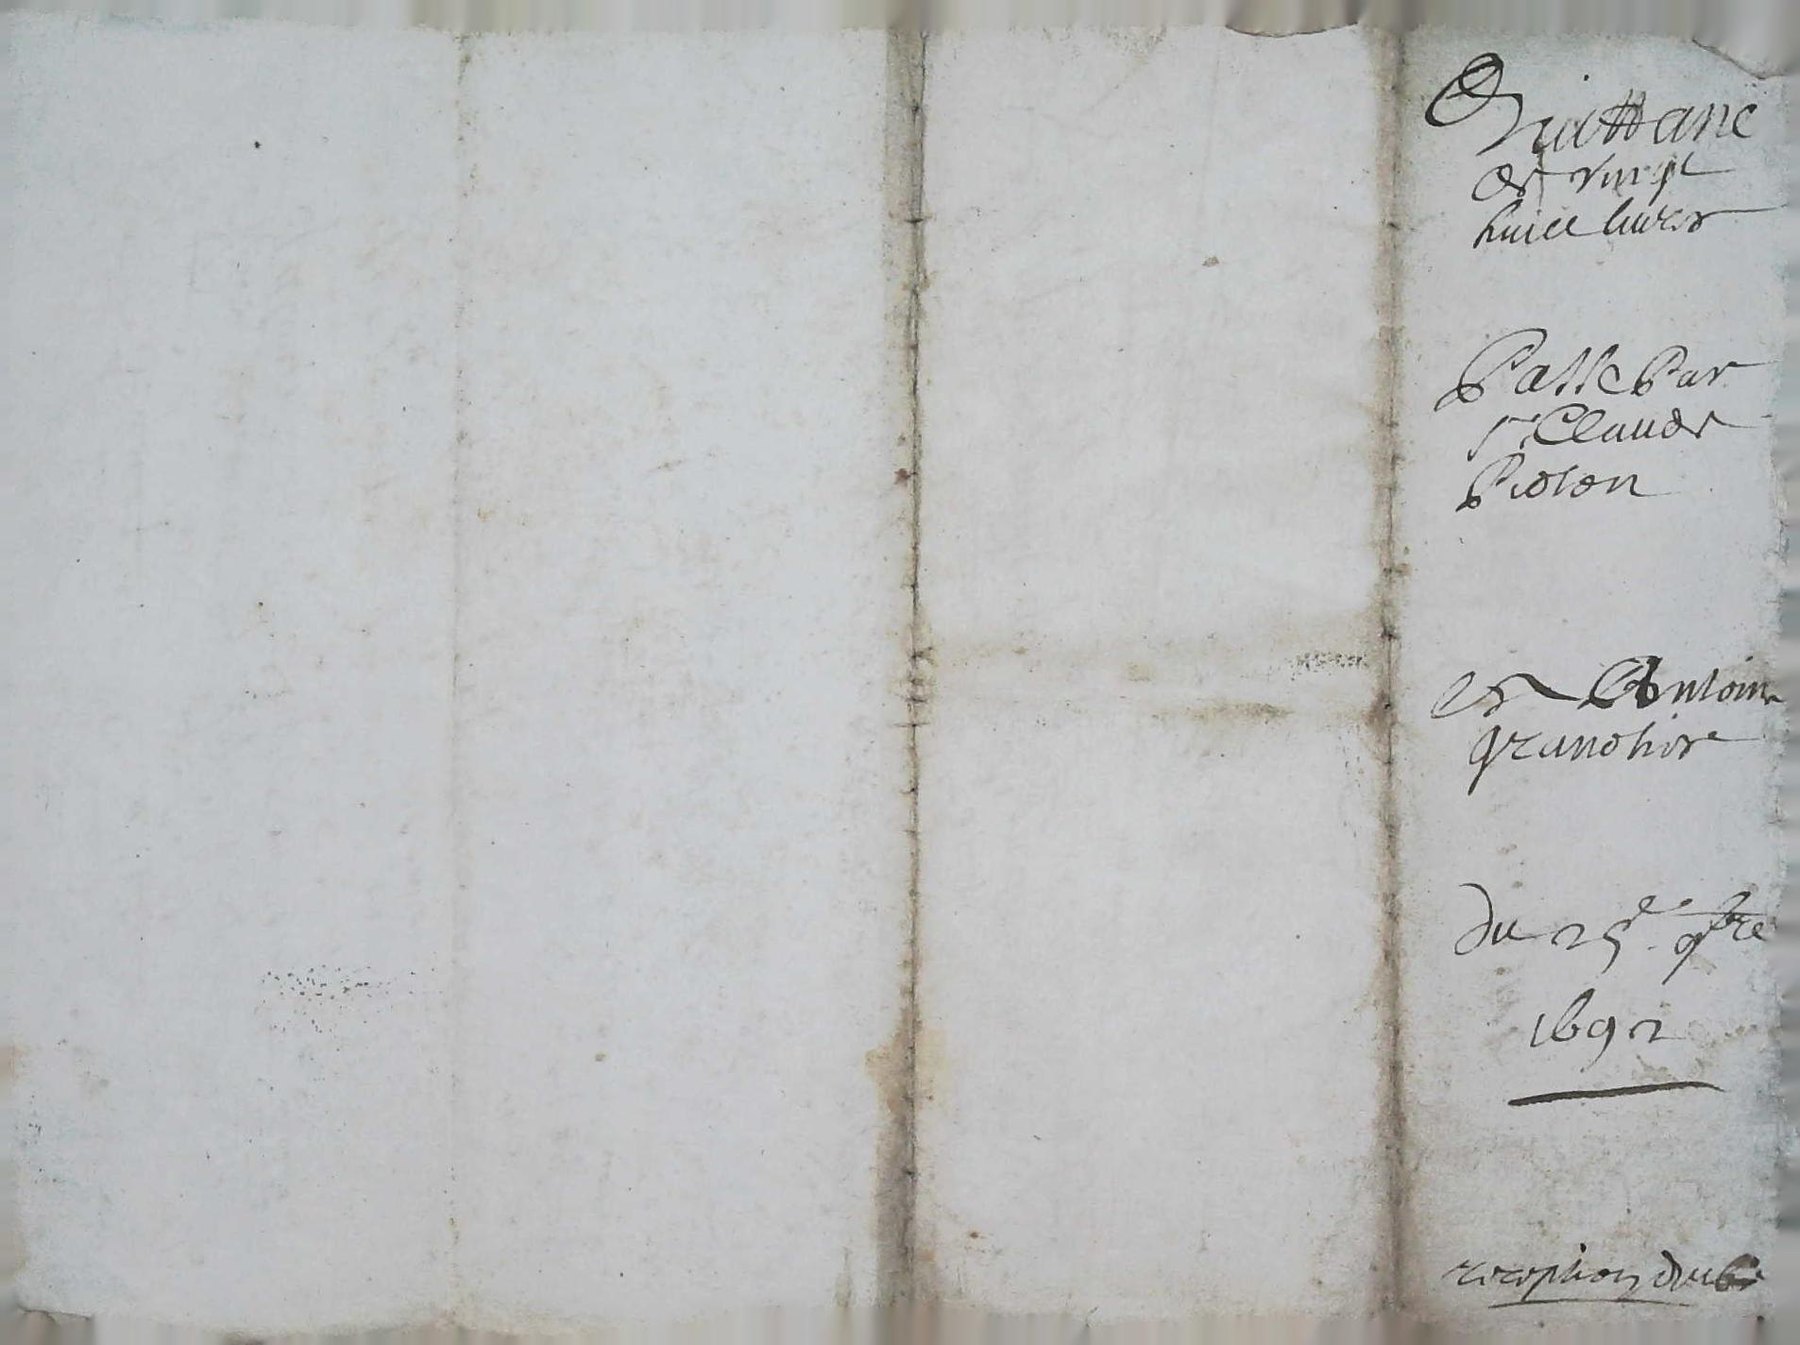 Quittanc
de vingt
huict livres
Passe Par
sr Claude
Piolon
et Antoine
grandhire
du 25e 9bre
1692
reception